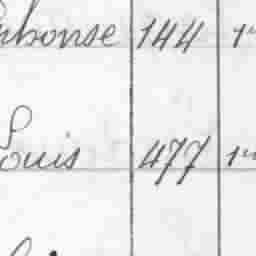 phonse 144 1
Louis 477 1